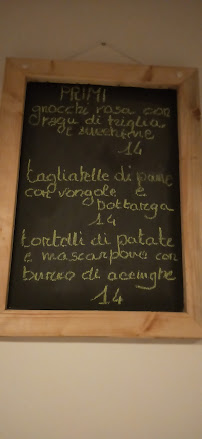 PRIMI
gnocchi rosa con
ragu di triglia
e
14
tagliatelle di pane
con vongole e
bottarga
14
tortelli di patate
e mascarpone con
burro di acciughe
14